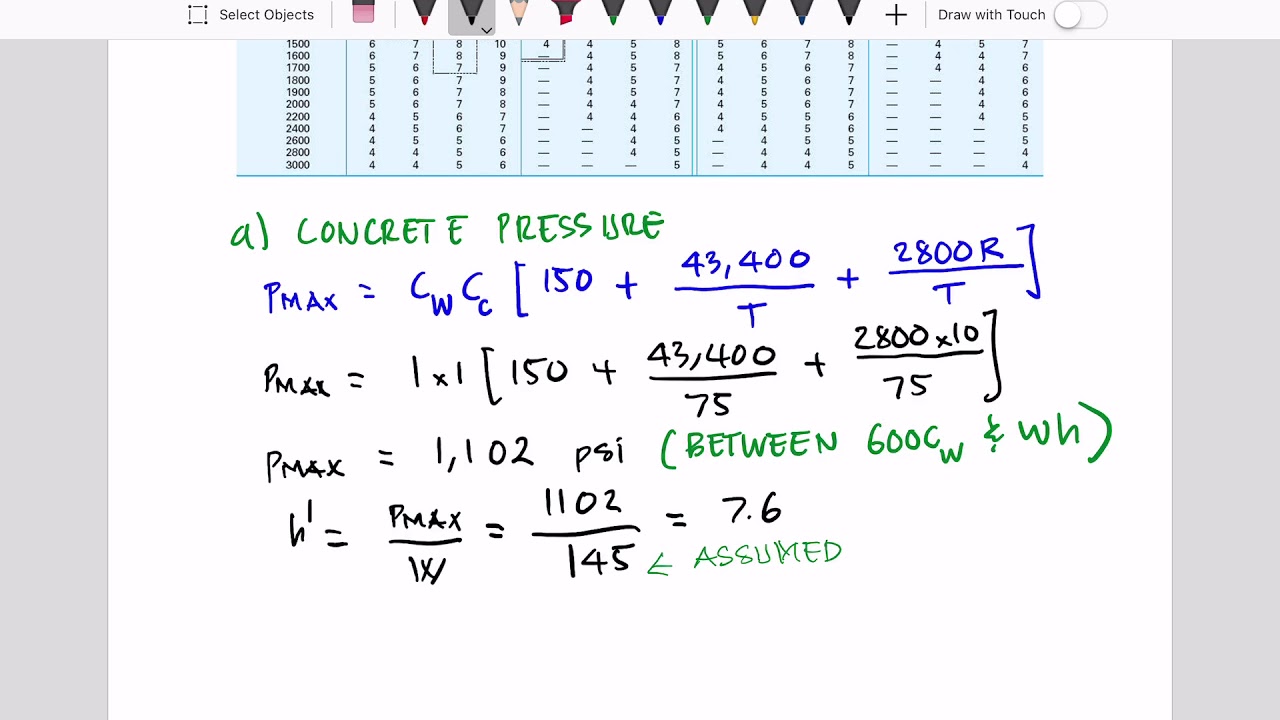 Select Objects Draw with Touch
1500 6 7 8 10 4 4 5 8 5 6 7 8 — 4 5 7
1600 6 7 8 9 — 4 5 8 5 6 7 8 — 4 4 7
1700 5 6 7 9 — 4 5 7 4 5 6 7 — 4 4 6
1800 5 6 7 9 — 4 5 7 4 5 6 7 — — 4 6
1900 5 6 7 8 — 4 5 7 4 5 6 7 — — 4 6
2000 5 6 7 8 — 4 4 7 4 5 6 7 — — 4 6
2200 4 5 6 7 — 4 4 6 4 5 5 6 — — 4 5
2400 4 5 6 7 — — 4 6 4 4 5 6 — — — 5
2600 4 5 5 6 — — 4 5 — 4 5 5 — — — 5
2800 4 4 5 6 — — 4 5 — 4 4 5 — — — 4
3000 4 4 5 6 — — — 5 — 4 4 5 — — — 4
a) CONCRETE PRESSURE
PMAX = CW CC [150 + 43,400/T + 2800R/T]
PMAX = 1x1 [150 + 43,400/75 + 2800x10/75]
PMAX = 1,102 psi (BETWEEN 600CW & Wh)
h' = PMAX/W = 1102/145 = 7.6
← ASSUMED